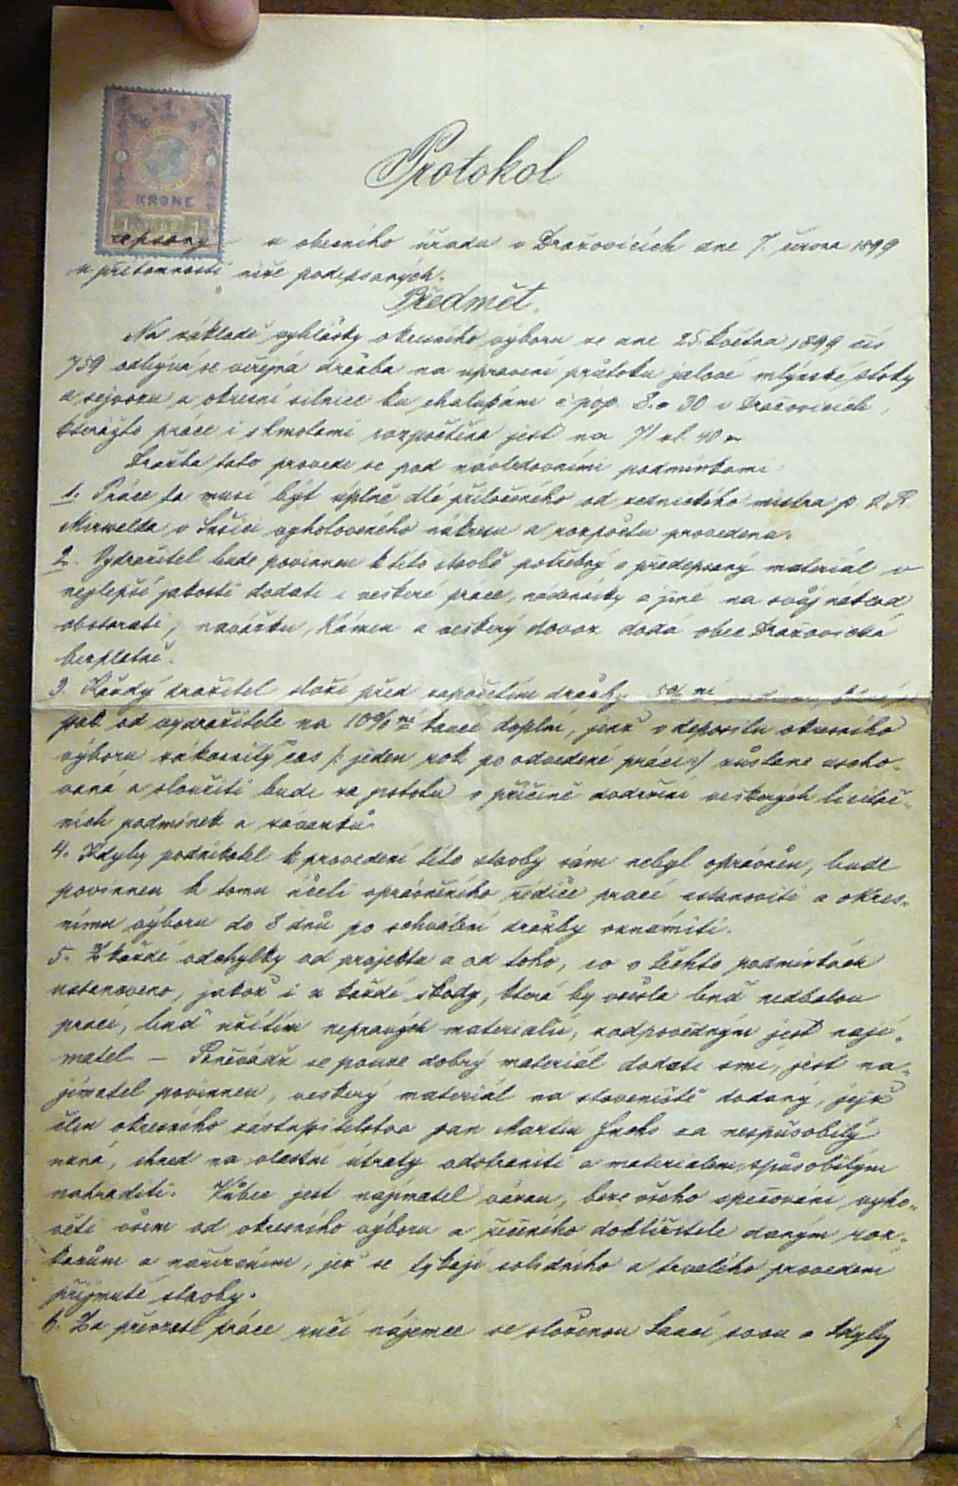 KRONE
Protokol
sepsaný u obecního úřadu v Dražovicích dne 7. června 1899
u přítomnosti níže podepsaných.
Předmět.
Na základě vyhlášky okresního výboru ze dne 25. května 1899 čís
759 odbývá se veřejná dražba na upravení průtoku jalové mlýnské stoky
a okresní silnice ku chalupám č. pop. 30 v Dražovicích,
kterážto práce i s hmotami rozpočtěna jest na 71 zl. 40
Dražba tato provede se pod následovními podmínkami
1. Práce ta musí býti úplně dle přiloženého od zednického mistra p.
v Sušici vyhotoveného nákresu a rozpočtu provedena.
2. Vydražitel bude povinnen k této stavbě potřebný a předepsaný materiál v
nejlepší jakosti dodati i veškeré práce, nádenníky a jiné na svůj náklad
obstarati, navážku, kámen a veškerý dovoz dodá obec Dražovická
bezplatně.
3. Každý dražitel složí před započetím dražby 5%ní
pak od vydražitele na 10%ní kauce doplní, jenž v depositu okresního
výboru zákonitý čas /: jeden rok po odvedené práci :/ zůstane uscho-
vaná a sloužiti bude za jistotu v příčině dodržení veškerých licitač-
ních podmínek a závazků.
4. Kdyby podnikatel k provedení této stavby sám nebyl oprávněn, bude
povinnen k tomu účeli oprávněného řídiče prací ustanoviti a okres-
nímu výboru do 8 dnů po schválení dražby oznámiti.
5. Z každé odchylky od projektu a od toho, co v těchto podmínkách
ustanoveno, jakož i z každé škody, která by vzešla buď nedbalou
prací, buď užitím nepravých materialií, zodpovědným jest nají-
matel — Poněvadž se pouze dobrý materiál dodati smí, jest na-
jímatel povinnen, veškerý materiál na staveniště dodaný, jejž
člen okresního zastupitelstva pan Martin Fuchs za nespůsobilý
uzná, ihned na vlastní útraty odstraniti a materialem spůsobilým
nahraditi. Vůbec jest najímatel vázán, beze všeho zpěčování vyho-
věti všem od okresního výboru a řečeného dohlížitele daným roz-
kazům a nařízením, jež se týkají solidního a trvalého provedení
přijmuté stavby.
6. Za převzaté práce ručí nájemce se složenou kaucí svou a kdyby